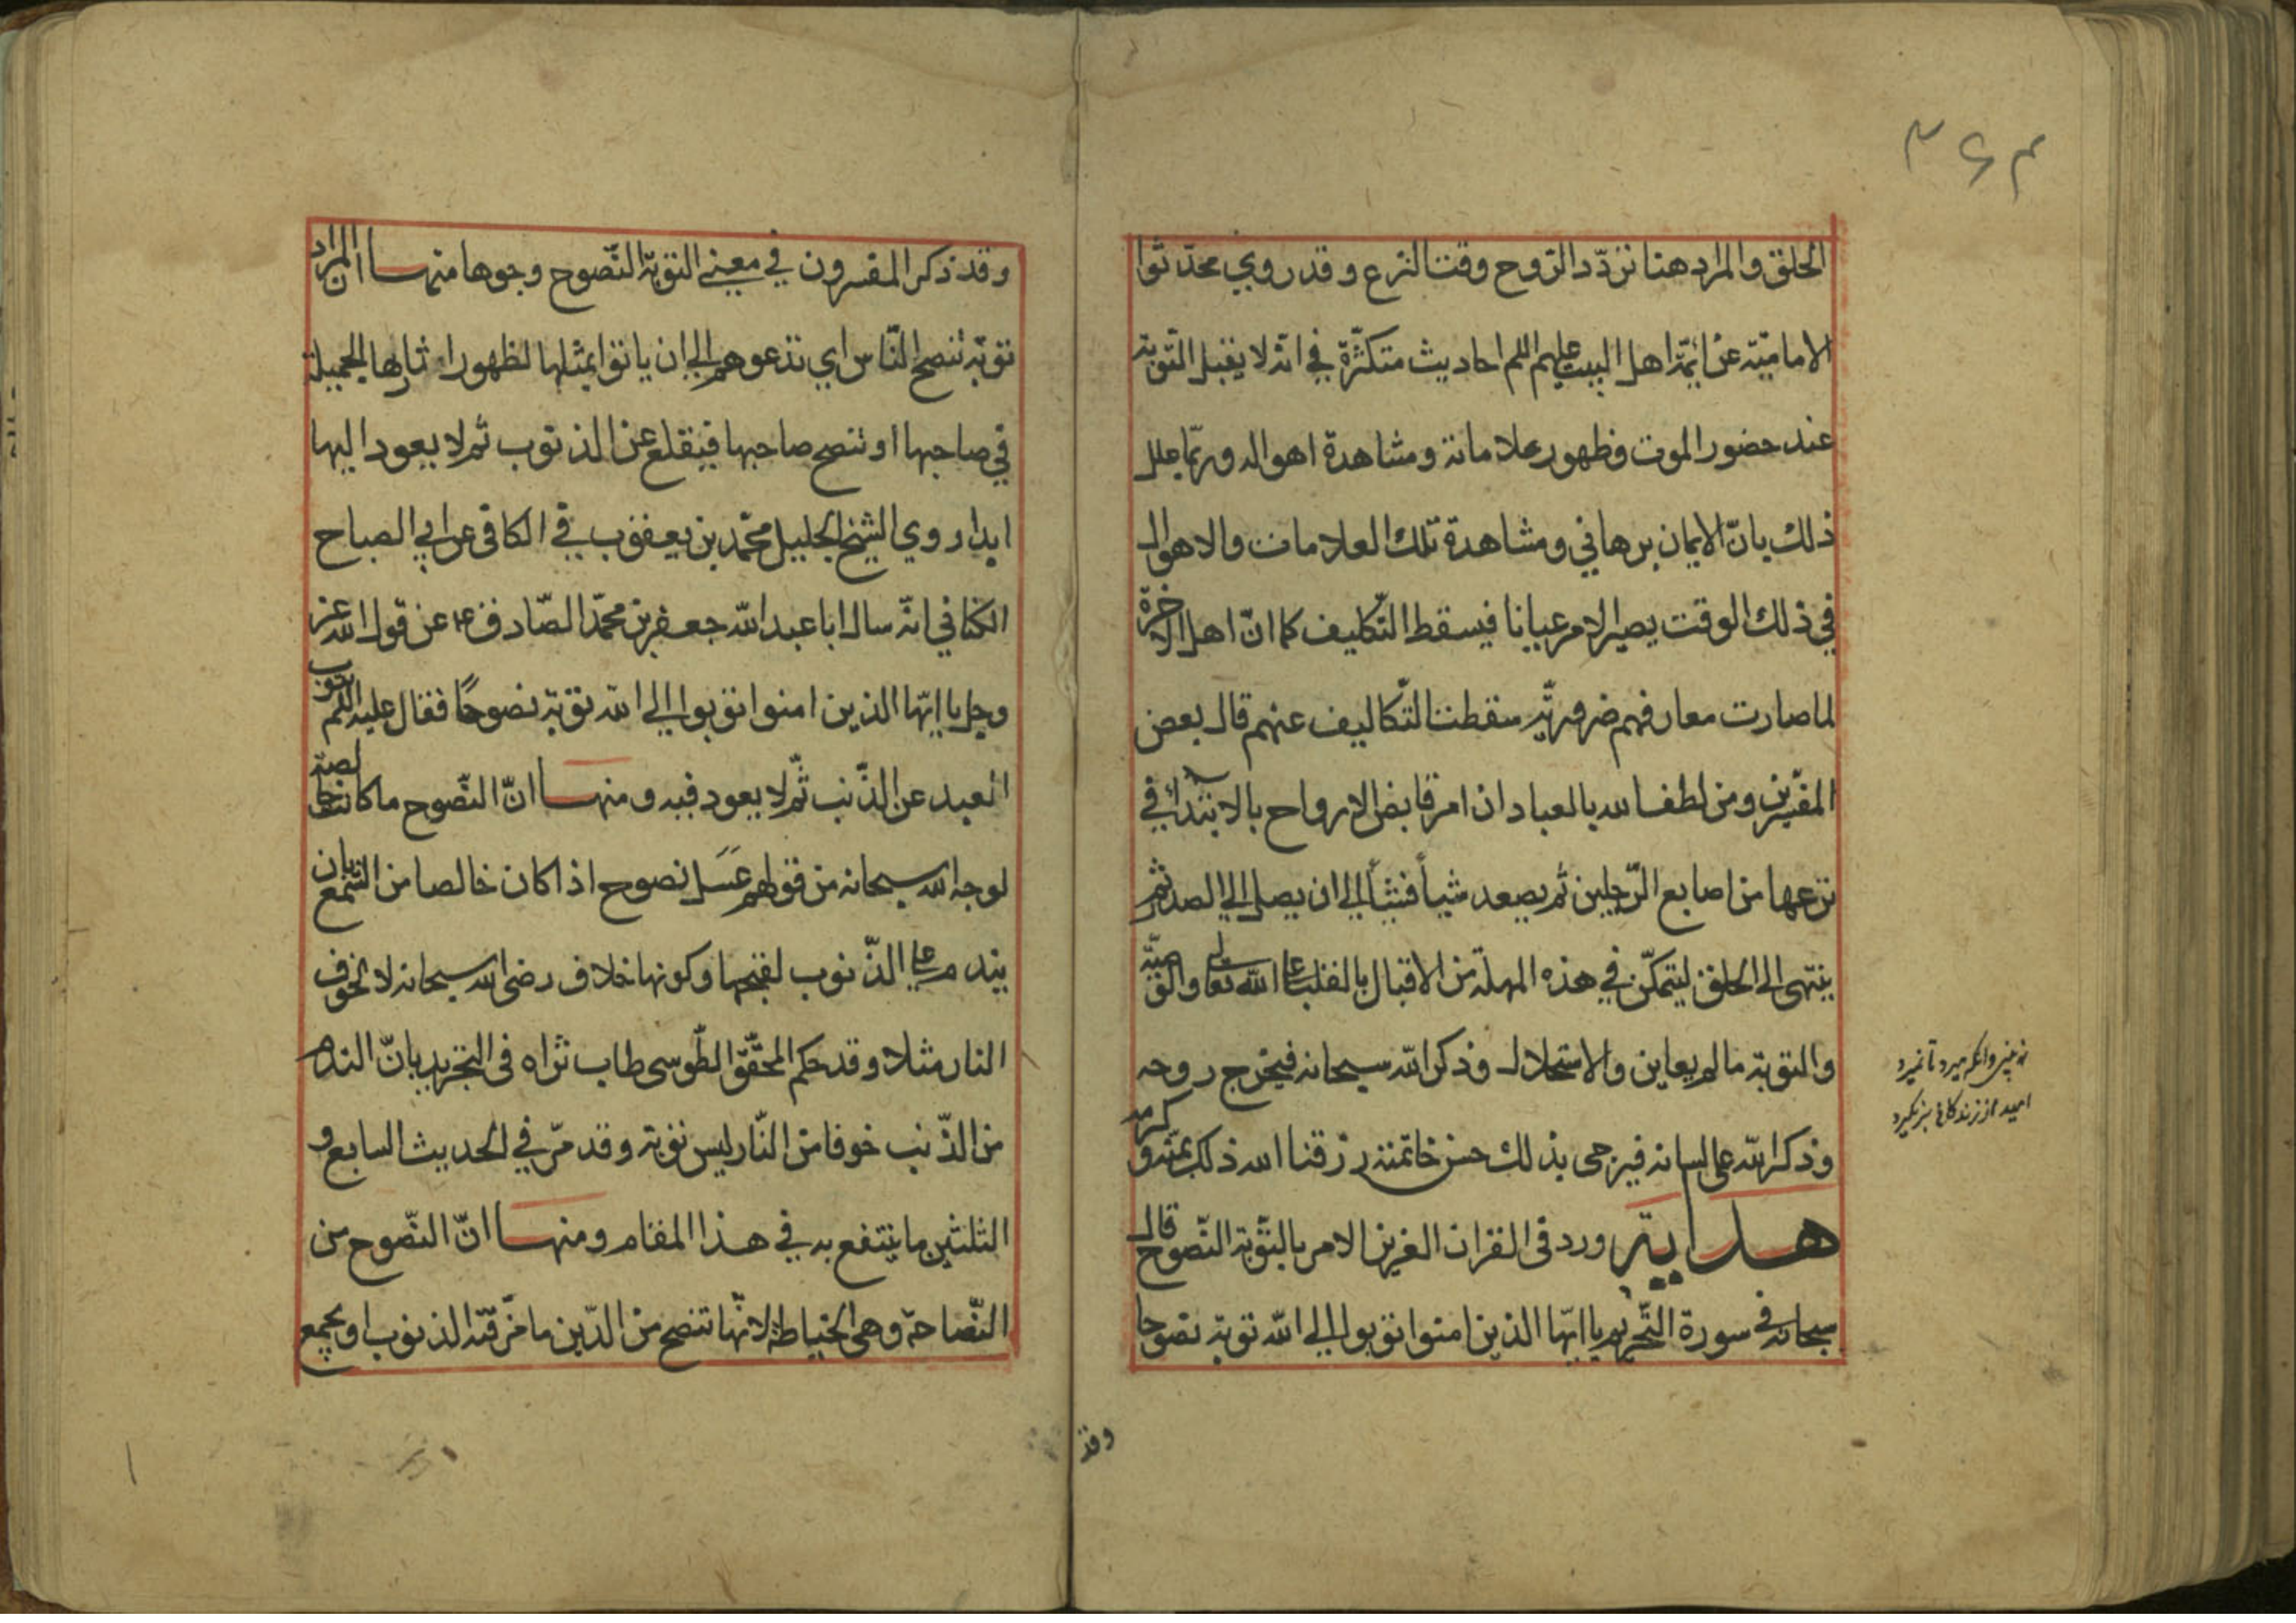 ۳۶۳
الحلق والمراد هنا تردّد الروح وقت النزع وقد روي محدّثوا
الامامیّة عن ائمّة اهل البیت علیهم السلم احادیث متکثّرة في انّه لا یقبل التّوبة
عند حضور الموت وظهور علاماته ومشاهدة اهواله وربّما علل
ذلك بانّ الایمان برهاني ومشاهدة تلك العلامات والاهوال
في ذلك الوقت یصیر الامر عیانا فیسقط التّکلیف کما انّ اهل الاخرة
لما صارت معارفهم ضروریّة سقطت التّکالیف عنهم قال بعض
المفسّرین ومن لطف الله بالعباد ان امر قابض الارواح بالابتداء في
نزعها من اصابع الرّجلین ثم یصعد شیأ فشیأ الی ان یصل الی الصدر ثم
ینتهی الی الحلق لیتمکّن في هذه المهلة من الاقبال بالقلب علی الله تعالی والوصیّة
والتوبة ما لم یعاین والاستحلال وذکر الله سبحانه فیخرج روحه
وذکر الله علی لسانه فیرجی بذلك حسن خاتمته رزقنا الله ذلك بمنّه وکرمه
هدایة ورد في القران العزیز الامر بالتّوبة النّصوح قال
سبحانه في سورة التّحریم یا ایّها الذین امنوا توبوا الی الله توبة نصوحا
وقد
نمیرد
امید از زندگانی برنگیرد
وقد ذکر المفسرون في معنی التوبة النّصوح وجوها منها ان المراد
توبة تنصح النّاس اي تدعوهم الی ان یاتوا بمثلها لظهور اثارها الجمیلة
في صاحبها او تنصح صاحبها فیقلع عن الذنوب ثم لا یعود الیها
ابدا روي الشیخ الجلیل محمّد بن یعقوب في الکافی عن ابي الصباح
الکناني انّه سال ابا عبد الله جعفر بن محمّد الصّادق ع عن قول الله عز
وجل یا ایّها الذین امنوا توبوا الی الله توبة نصوحًا فقال علیه السلم یتوب
العبد عن الذّنب ثّم لا یعود فیه ومنها انّ النّصوح ما کانت خالصة
لوجه الله سبحانه من قولهم عَسَل نصوح اذا کان خالصا من الشمع بان
یندم علی الذّنوب لقبحها وکونها خلاف رضی الله سبحانه لا لخوف
النار مثلا وقد حکم المحقّق الطّوسی طاب ثراه في التجرید بانّ الندم
من الذّنب خوفا من النّار لیس توبة وقد مرّ في الحدیث السابع و
الثلثین ما ینتفع به في هذا المقام ومنها انّ النّصوح من
النّصاحة وهی الخیاطة لانّها تنصح من الدّین ما مزّقته الذنوب او یجمع